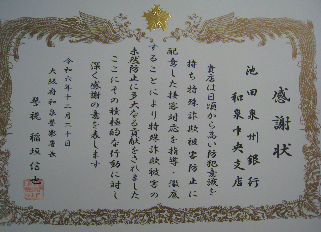 感謝状
池田泉州銀行
和泉中央支店
貴店は日頃から高い防犯意識を
持ち特殊詐欺被害防止に
配意した接客対応を指導・徹底
することにより特殊詐欺被害の
未然防止に多大なる貢献をされました
ここにその積極的な行動に対し
深く感謝の意を表します
令和六年十二月二十日
大阪府和泉警察署長
警視 稲垣